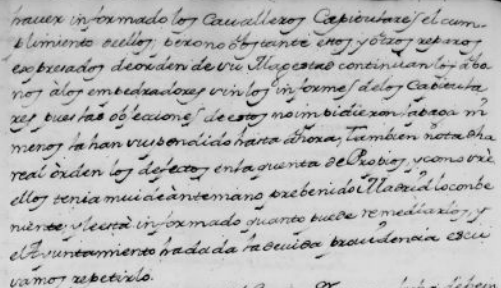 haver informado los Cavalleros Capitulares el cum-
plimiento de ellos; pero no obstante estos y otros reparos
expresados de orden de vu Magestad continuan los abo
nos a los empedradores vin los informes de los Capitula
res, pues las objecciones de estos no impidieron la paga ni
menos la han vuspendido hasta ahora, Tambien nota dha
real òrden los defectos en la quenta de Propios, y como vre
ellos tenia mui de àntemano prebenido Madrid lo conbe
niente, y le està informado quanto puede remediarlos, y
el Ayuntamiento ha dada la devida providencia escu
vamos repetirlo.